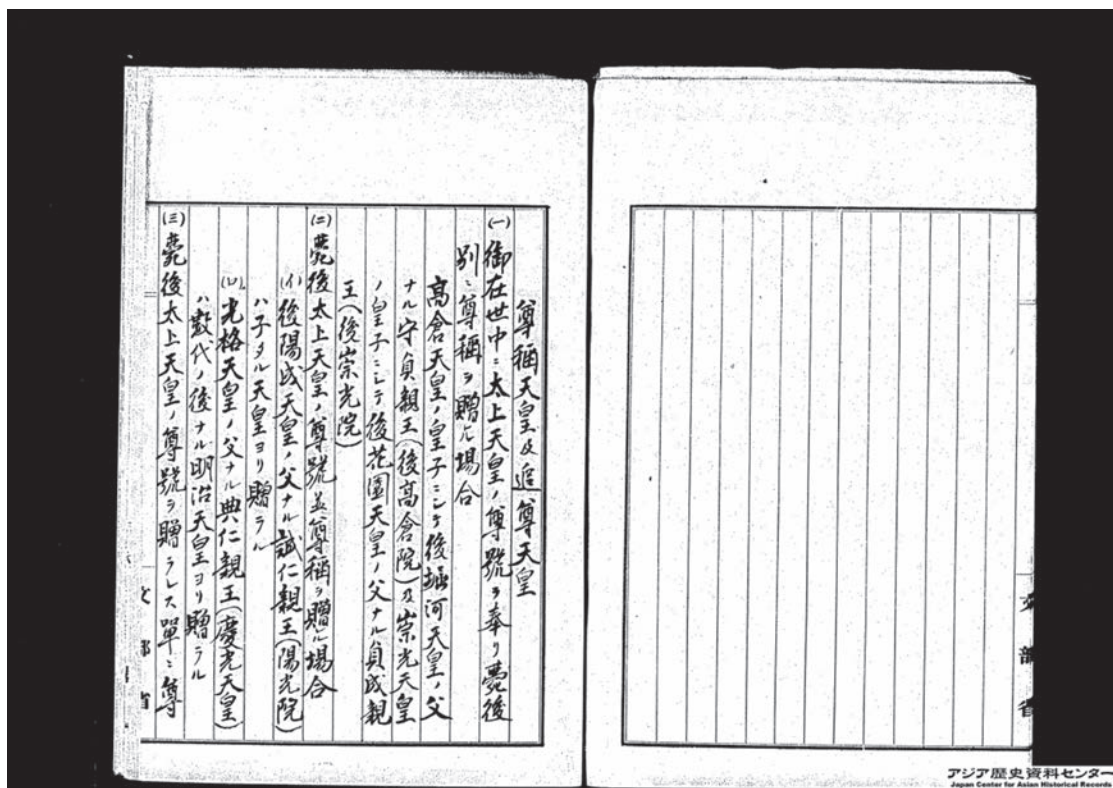 文部省
尊稱天皇及追尊天皇
(一)御在世中ニ太上天皇ノ尊號ヲ奉リ薨後
別ニ尊稱ヲ贈ル場合
高倉天皇ノ皇子ニシテ後堀河天皇ノ父
ナル守貞親王(後高倉院)及崇光天皇
ノ皇子ニシテ後花園天皇ノ父ナル貞成親
王(後崇光院)
(二)薨後太上天皇ノ尊號並尊稱ヲ贈ル場合
(イ)後陽成天皇ノ父ナル誠仁親王(陽光院)
ハ子タル天皇ヨリ贈ラル
(ロ)光格天皇ノ父ナル典仁親王(慶光天皇)
ハ數代ノ後ナル明治天皇ヨリ贈ラル
(三)薨後太上天皇ノ尊號ヲ贈ラレス單ニ尊
文部省
アジア歴史資料センター
Japan Center for Asian Historical Records